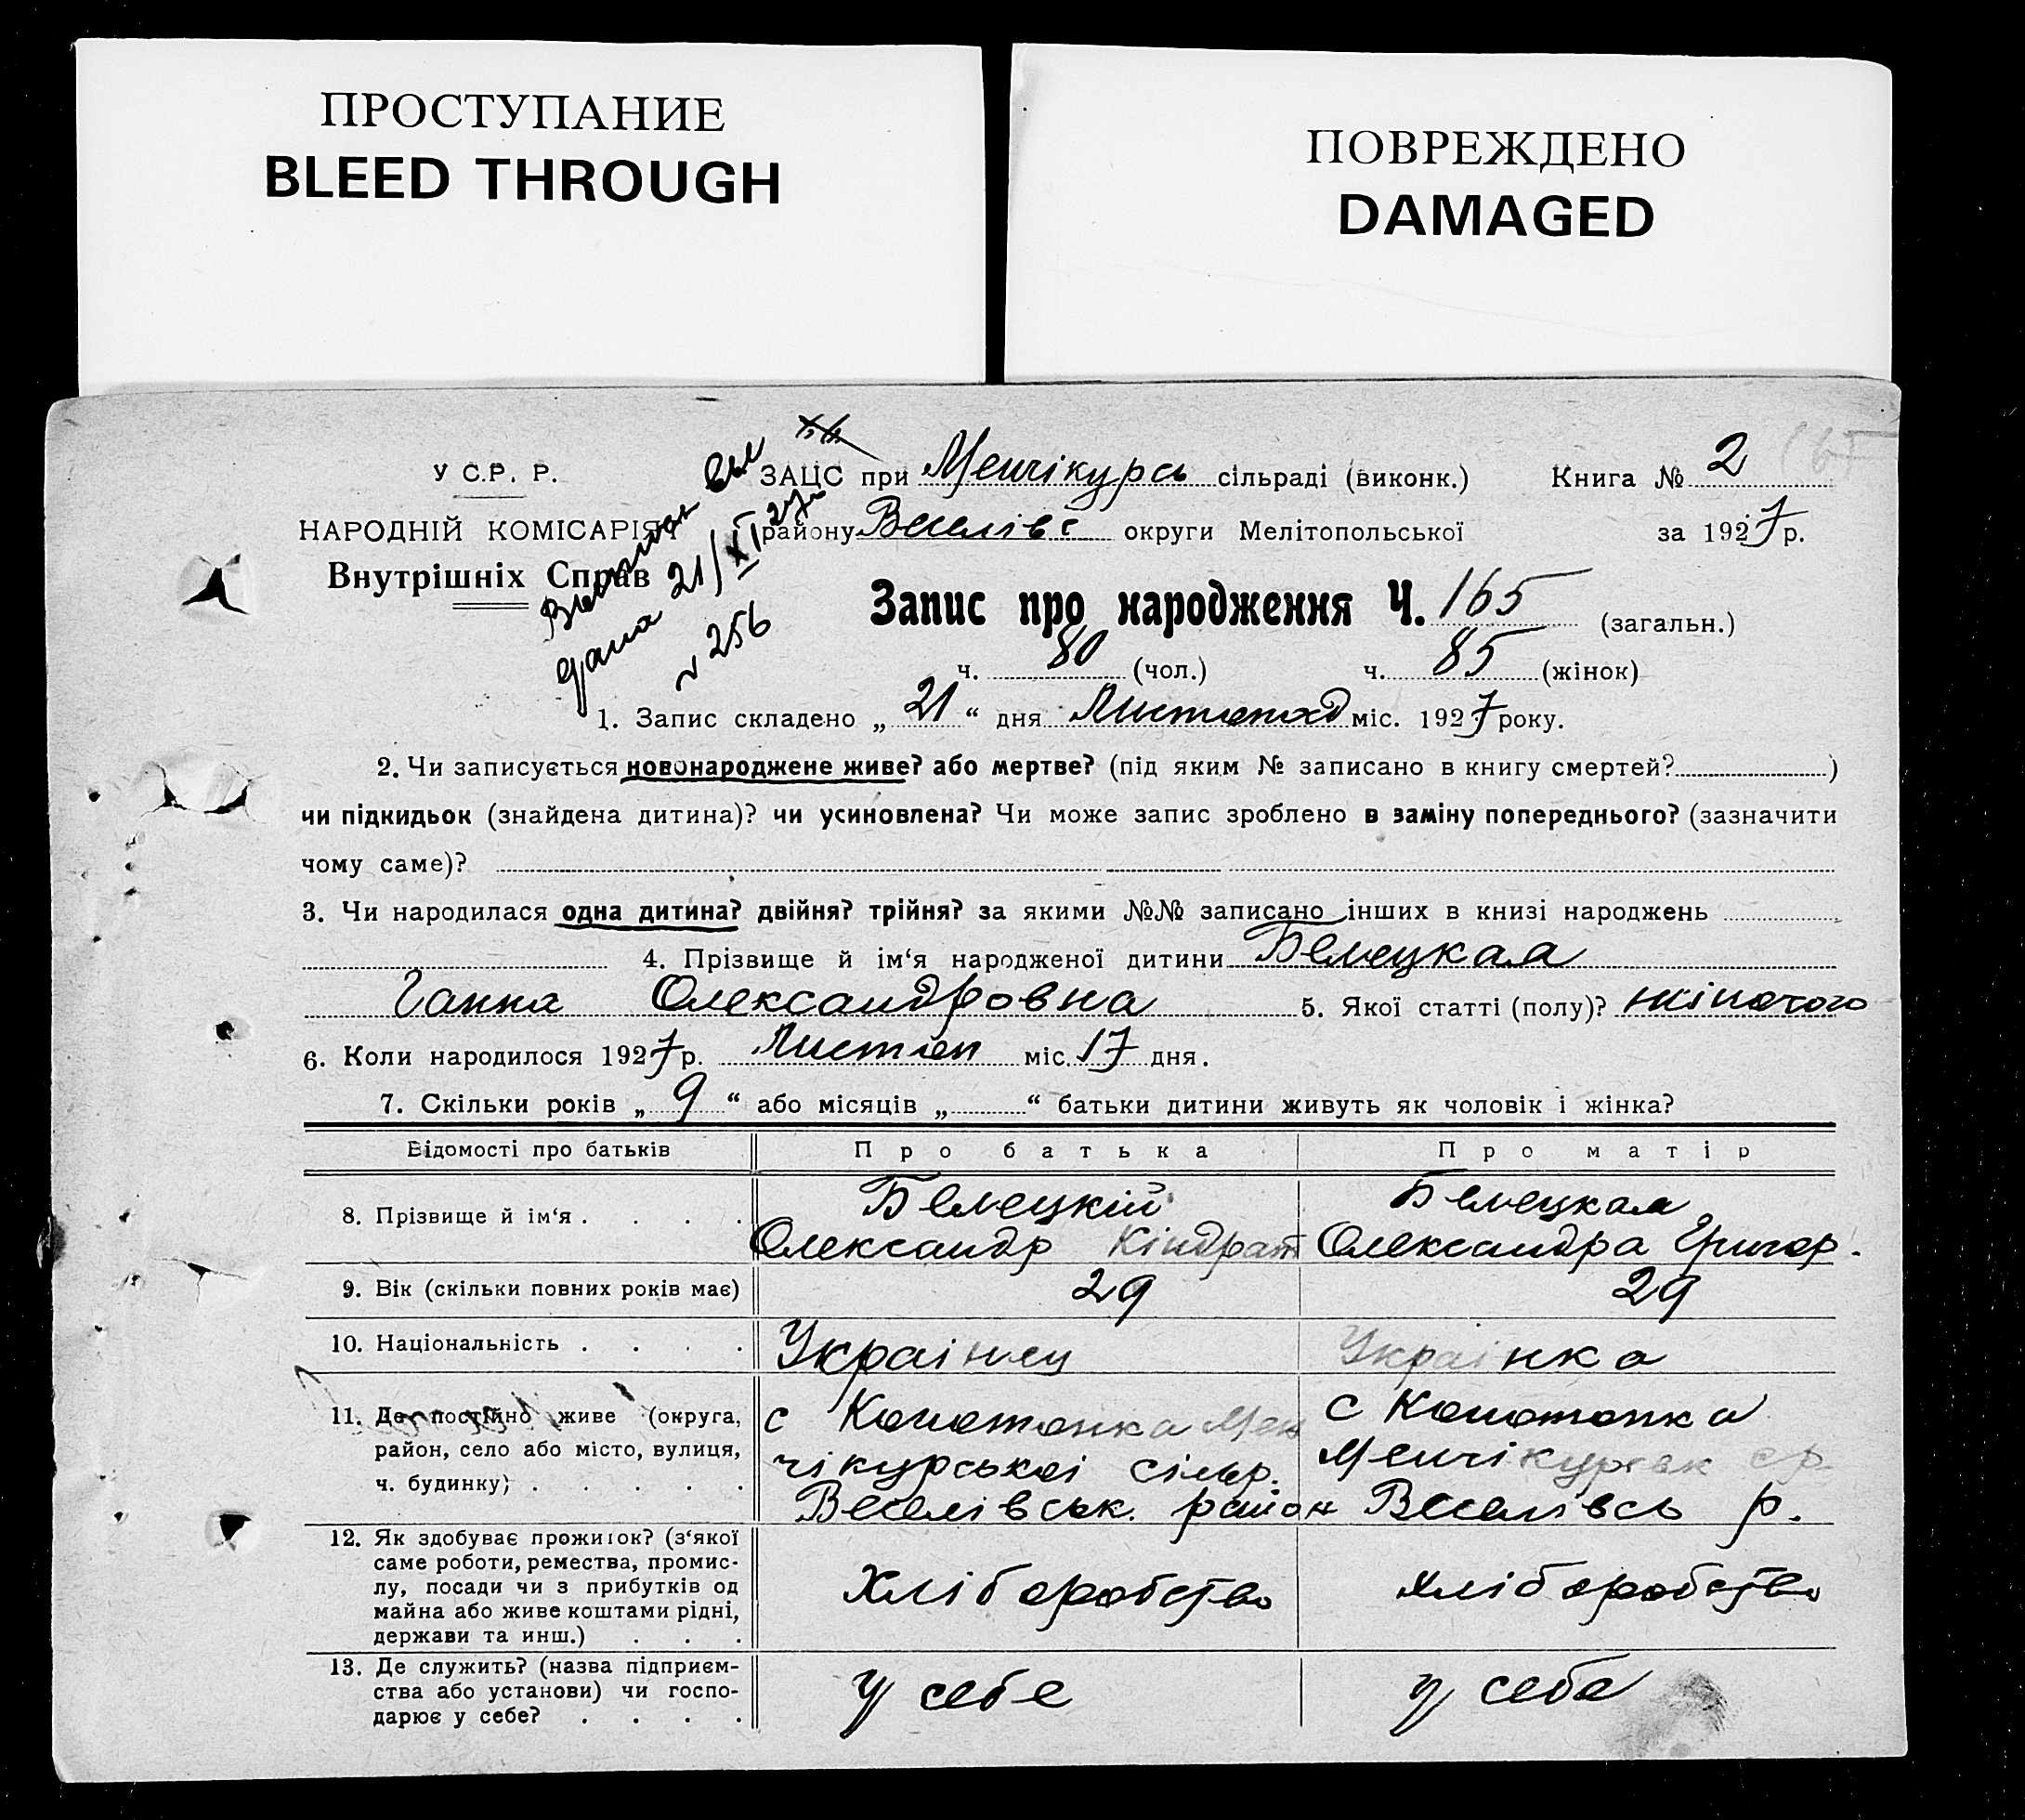 ПРОСТУПАНИЕ
BLEED THROUGH
ПОВРЕЖДЕНО
DAMAGED
У С.Р. Р.
ЗАЦС при Менчікурсь сільраді (виконк.) Книга № 2
НАРОДНІЙ КОМІСАРІЯТ
району Веселівс округи Мелітопольської за 1927 р.
Внутрішніх Справ
дана 21/XI 27
№ 256
Запис про народження Ч. 165 (загальн.)
ч. 80 (чол.) ч. 85 (жінок)
1. Запис складено „ 21 “ дня Листопад міс. 1927 року.
2. Чи записується новонароджене живе? або мертве? (під яким № записано в книгу смертей? )
чи підкидьок (знайдена дитина)? чи усиновлена? Чи може запис зроблено в заміну попереднього? (зазначити
чому саме)?
3. Чи народилася одна дитина? двійня? трійня? за якими №№ записано інших в книзі народжень
4. Прізвище й ім‘я народженої дитини Белецкая
Ганна Олександровна 5. Якої статті (полу)? жіночого
6. Коли народилося 1927 р. Листоп міс. 17 дня.
7. Скільки років „ 9 “ або місяців „ “ батьки дитини живуть як чоловік і жінка?
Відомості про батьків Про батька Про матір
8. Прізвище й ім‘я . . . .
Белецкій
Олександр Кіндрат
Белецкая
Олександра Григор.
9. Вік (скільки повних років має) 29 29
10. Національність . . . . Украінец Украінка
11. Де постійно живе (округа,
район, село або місто, вулиця,
ч. будинку) . . . . .
с Конотопка Мен
чікурськоі сільр.
Веселівськ. район
с Конотопка
Менчікурськ ср.
Веселівсь р.
12. Як здобуває прожиток? (з‘якої
саме роботи, ремества, промис-
лу, посади чи з прибутків од
майна або живе коштами рідні,
держави та инш.) . . .
Хліборобство Хліборобство
13. Де служить? (назва підприєм-
ства або установи) чи госпо-
дарює у себе? . . . .
у себе у себе